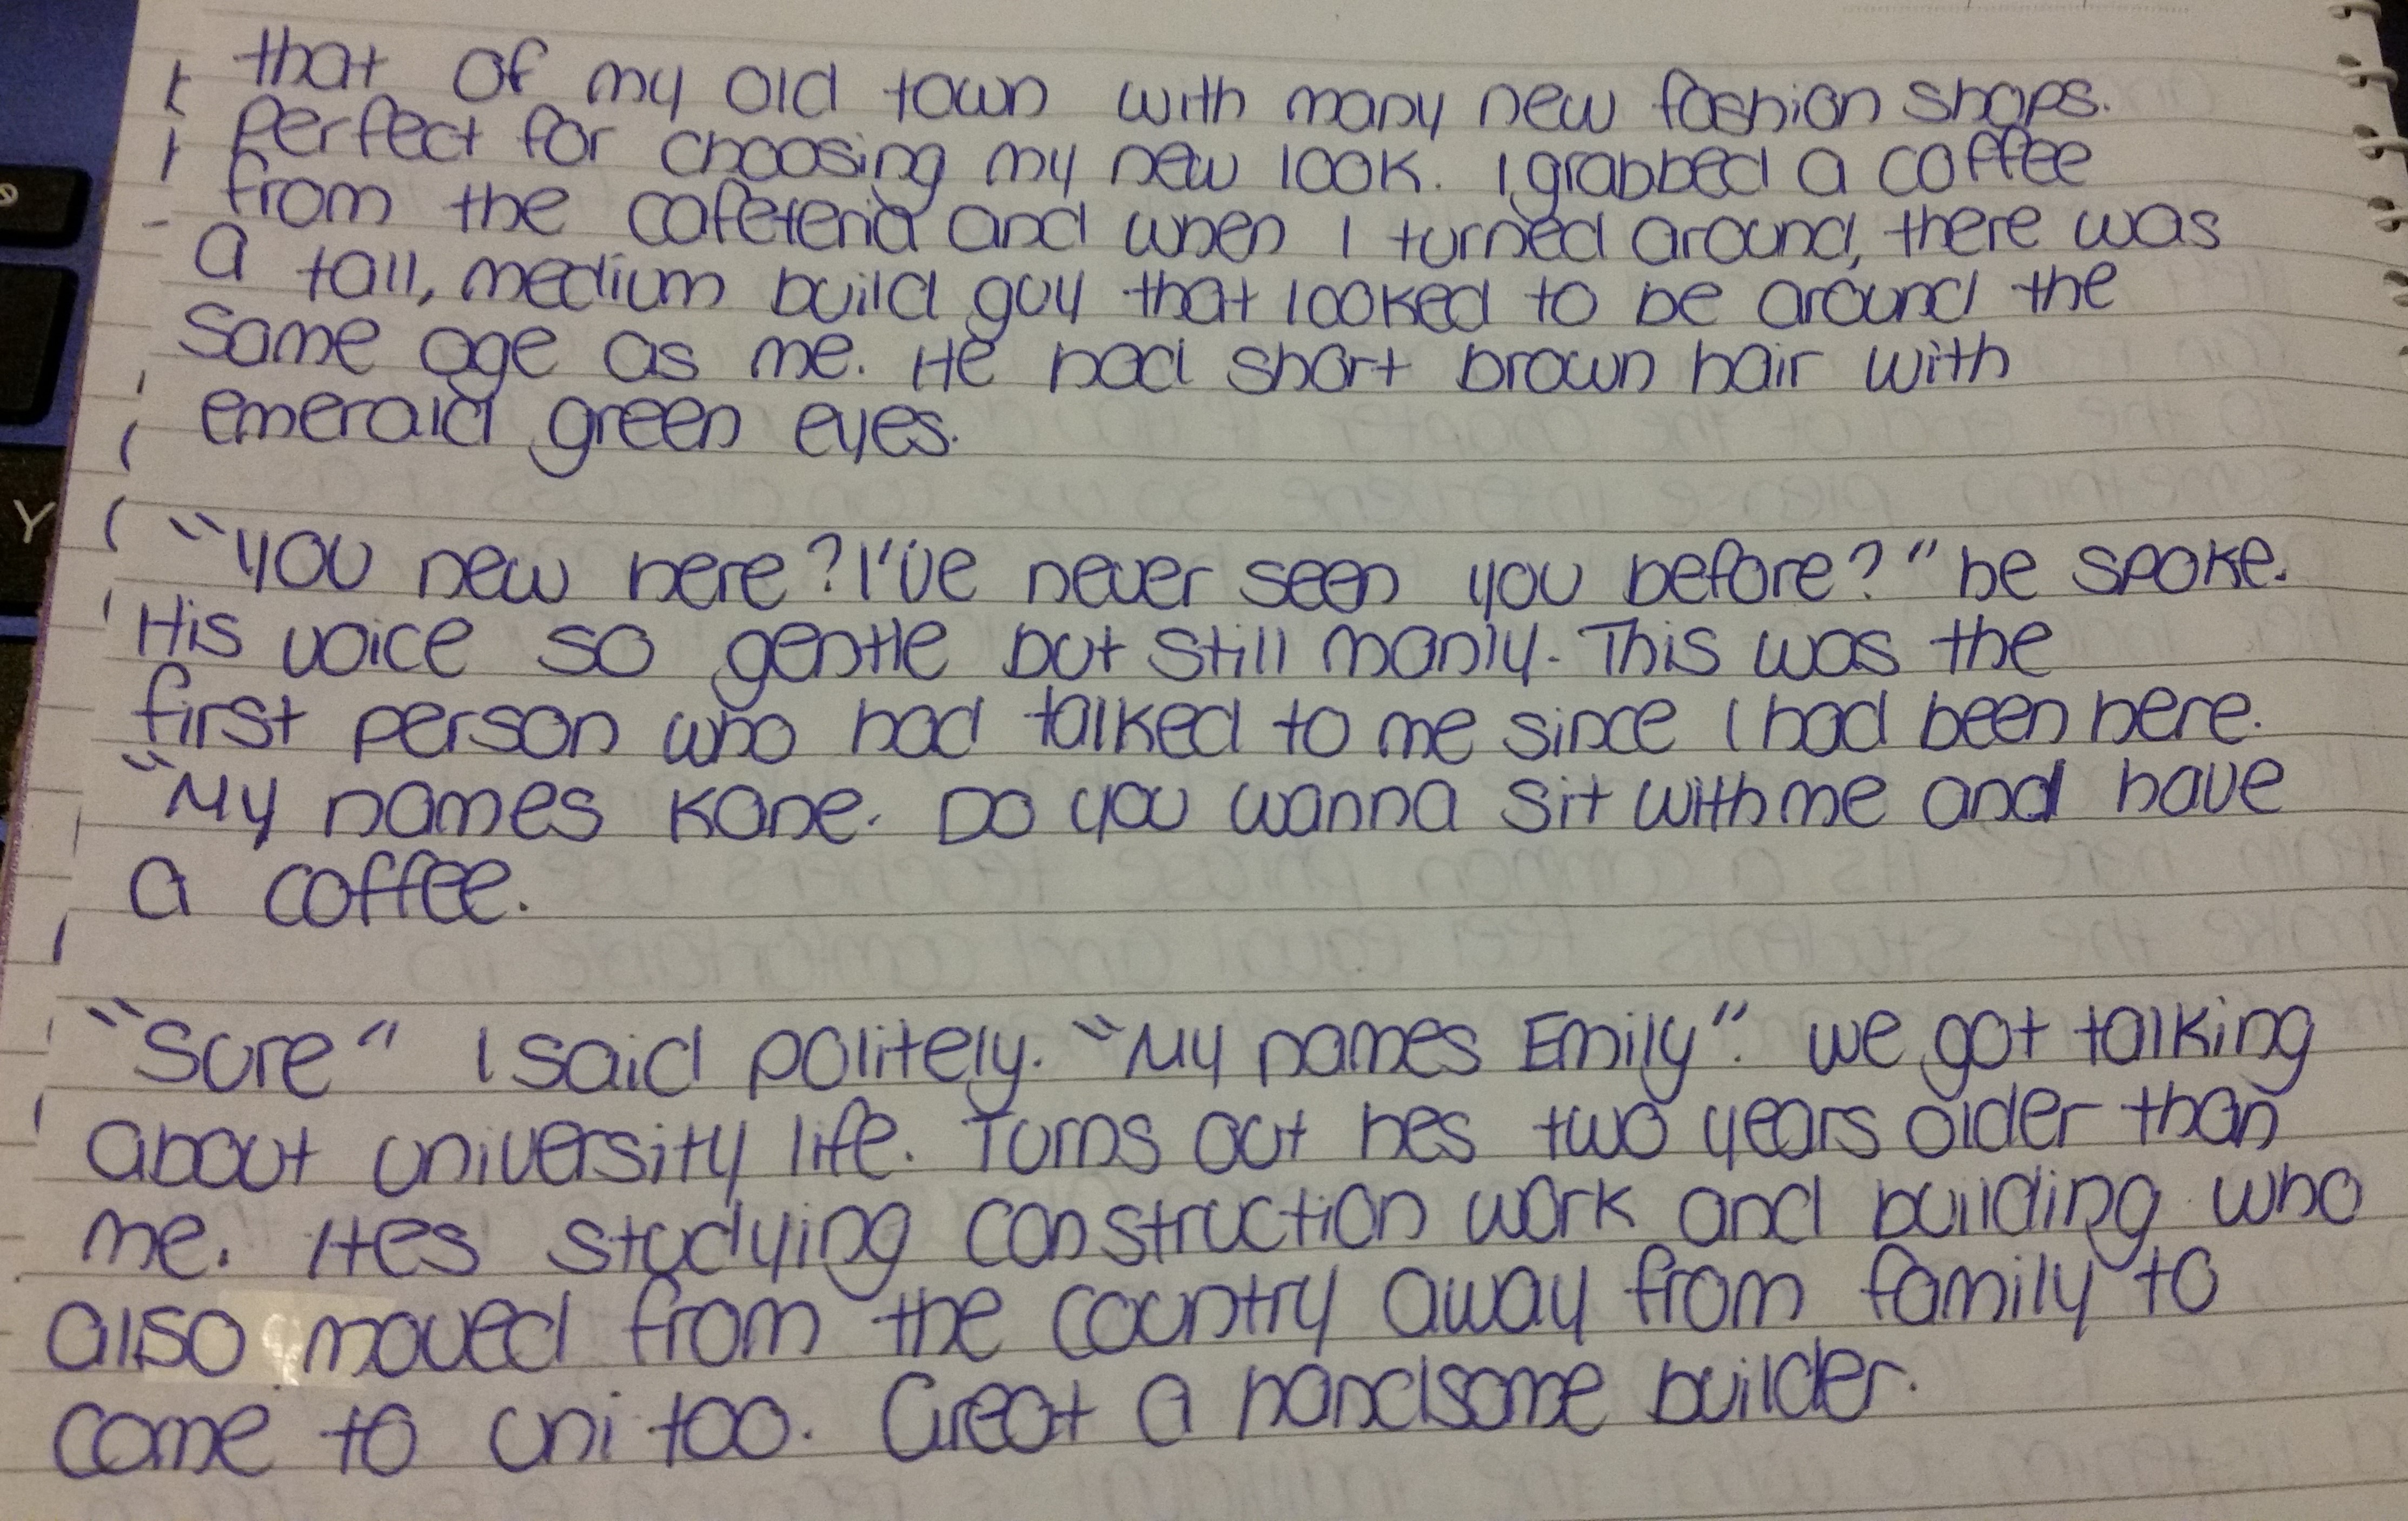 that of my old town with many new fashion shops.
Perfect for choosing my new look. I grabbed a coffee
from the cafeteria and when I turned around, there was
a tall, medium build guy that looked to be around the
same age as me. He had short brown hair with
emerald green eyes.
"You new here? I've never seen you before?" he spoke.
His voice so gentle but still manly. This was the
first person who had talked to me since I had been here.
"My names Kane. Do you wanna sit with me and have
a coffee.
"Sure" I said politely. "My names Emily". We got talking
about university life. Turns out hes two years older than
me. Hes studying construction work and building who
also moved from the country away from family to
come to uni too. Great a handsome builder.
Y